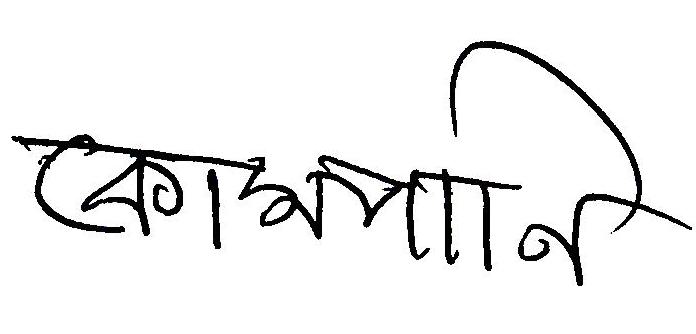 কোমপানি